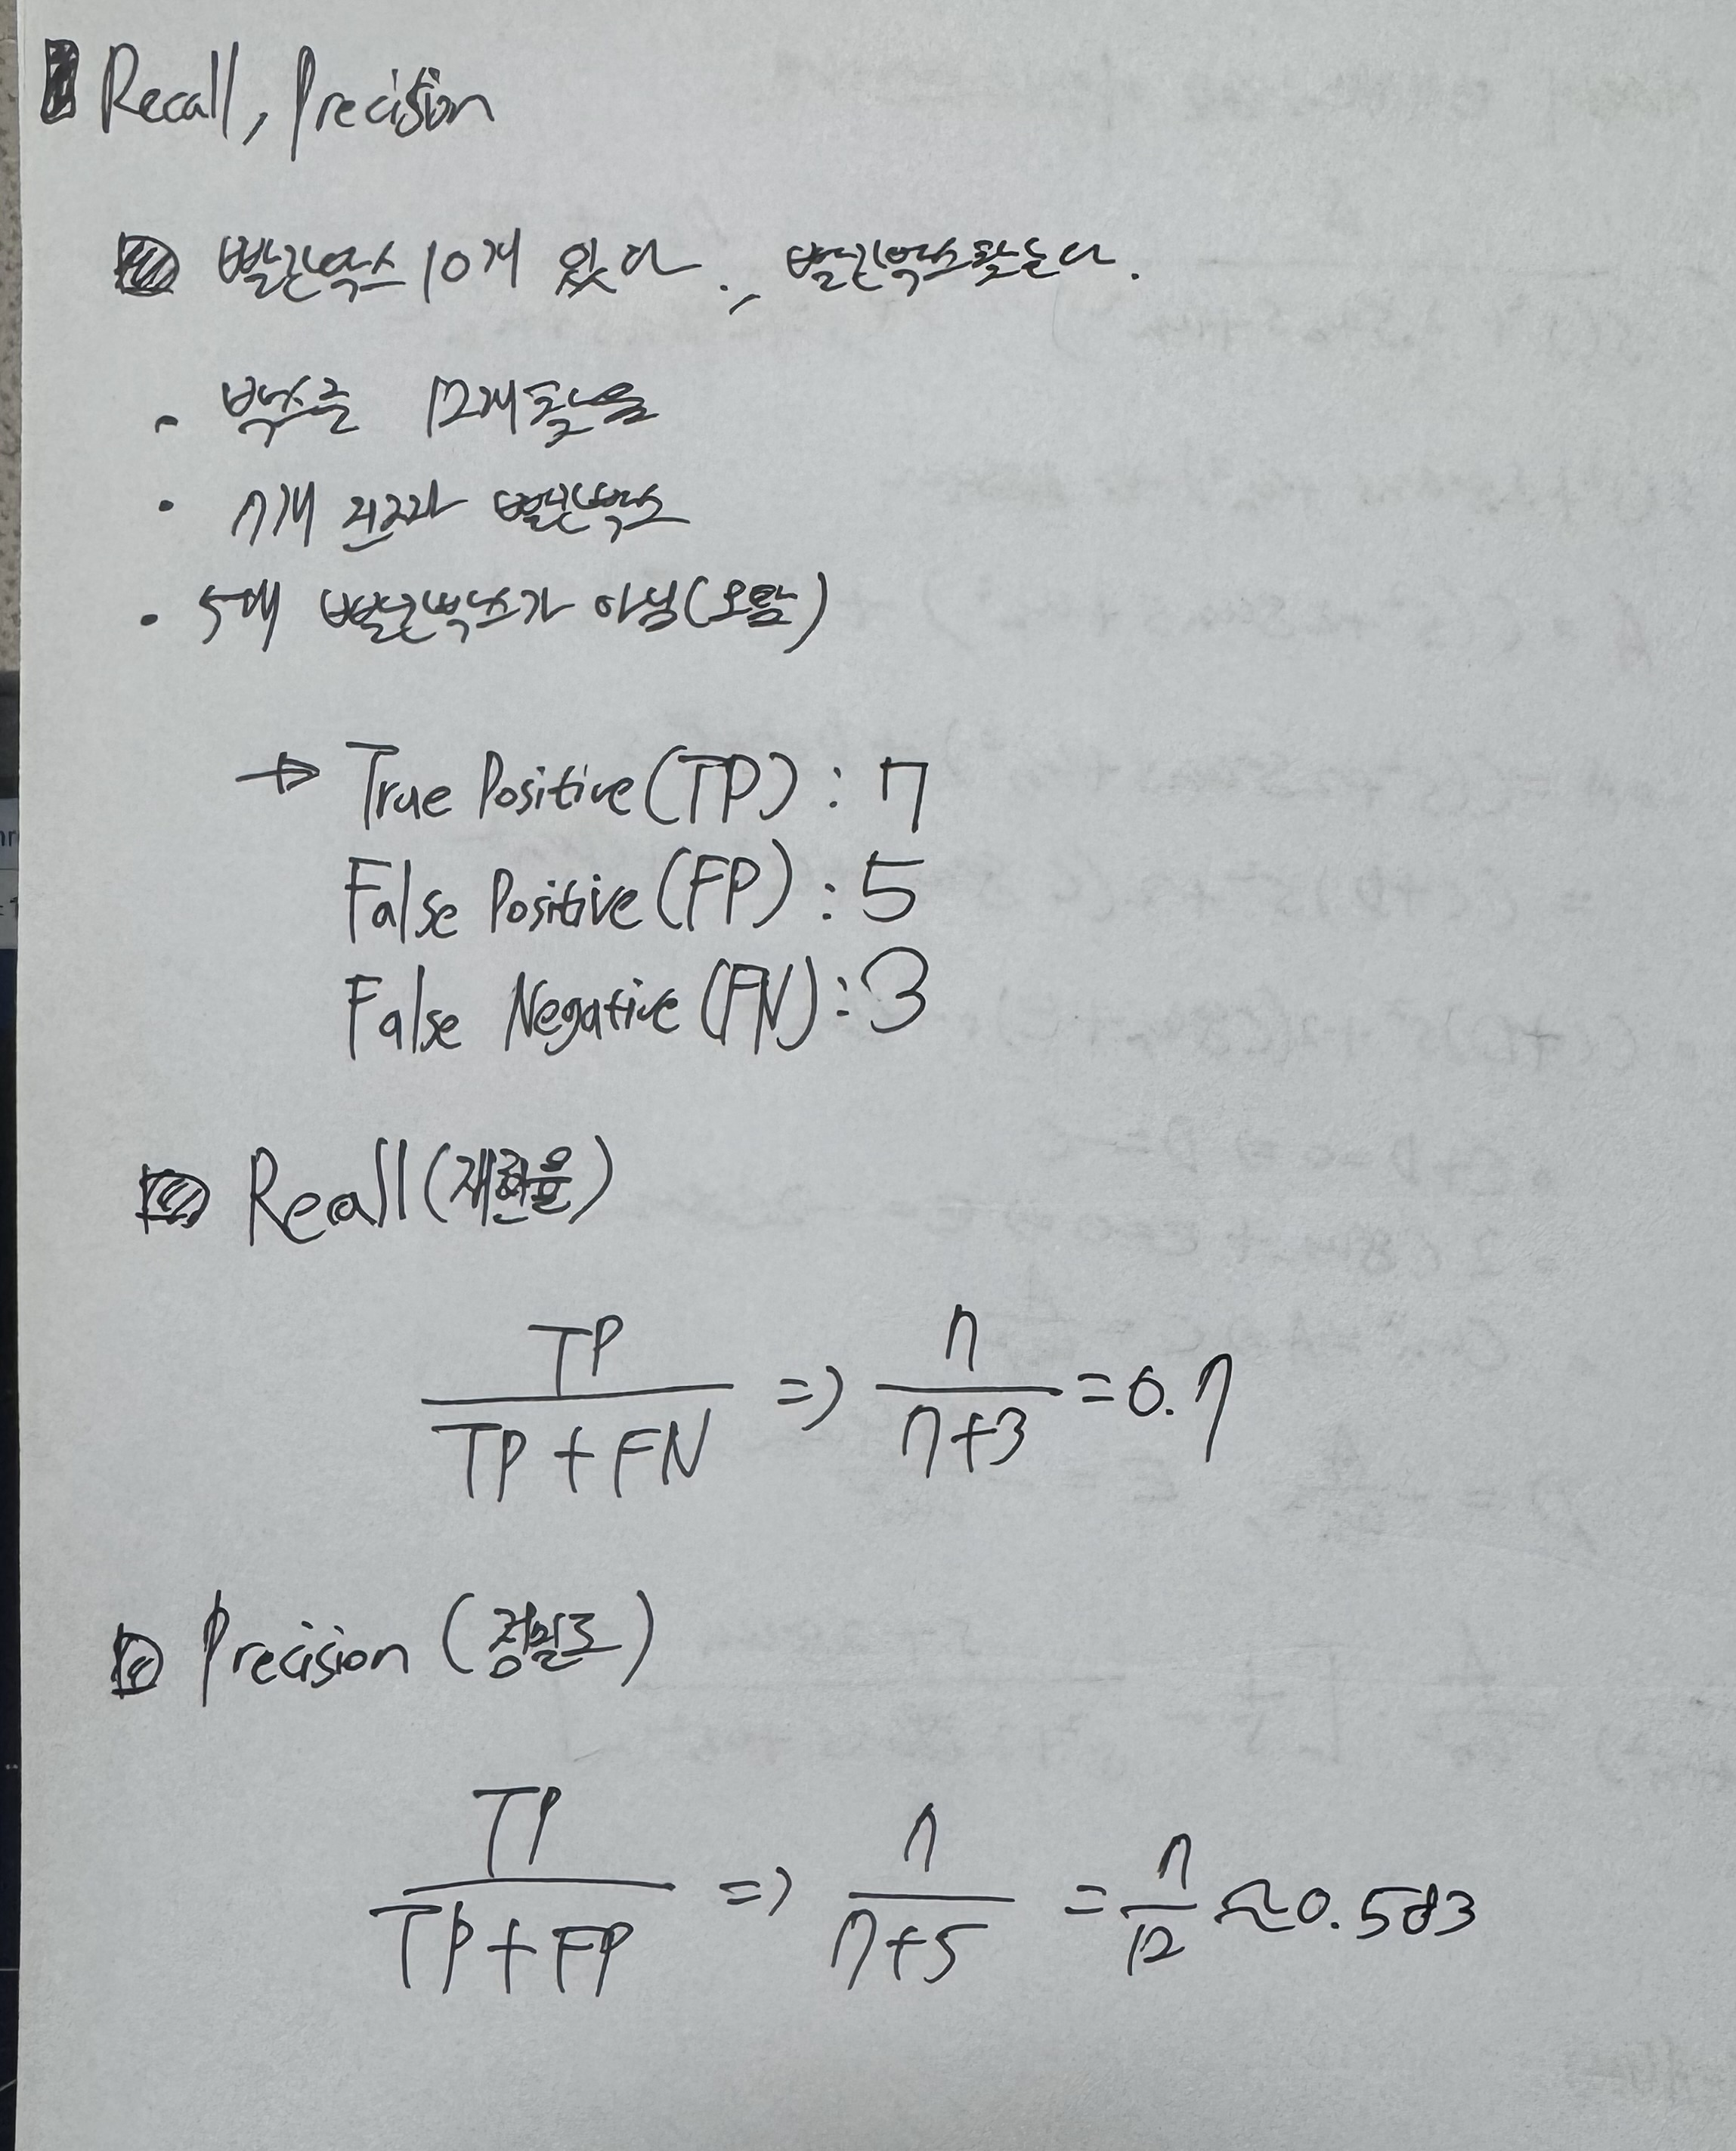 Recall, Precision
빨간박스 10개 있다., 빨간박스 찾는다.
· 박스를 12개 찾았음
· 7개 진짜 빨간박스
· 5개 빨간박스가 아님(오탐)
→ True Positive(TP) : 7
False Positive(FP) : 5
False Negative(FN) : 3
Recall(재현율)
TP / TP + FN => 7 / 7+3 = 0.7
Precision (정밀도)
TP / TP + FP => 7 / 7+5 = 7 / 12 ≈ 0.583